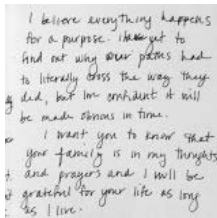 I believe everything happens
for a purpose. I have yet to
find out why our paths had
to literally cross the way they
did, but I'm confident it will
be made obvious in time.
I want you to know that
your family is in my thoughts
and prayers and I will be
grateful for your life as long
as I live.